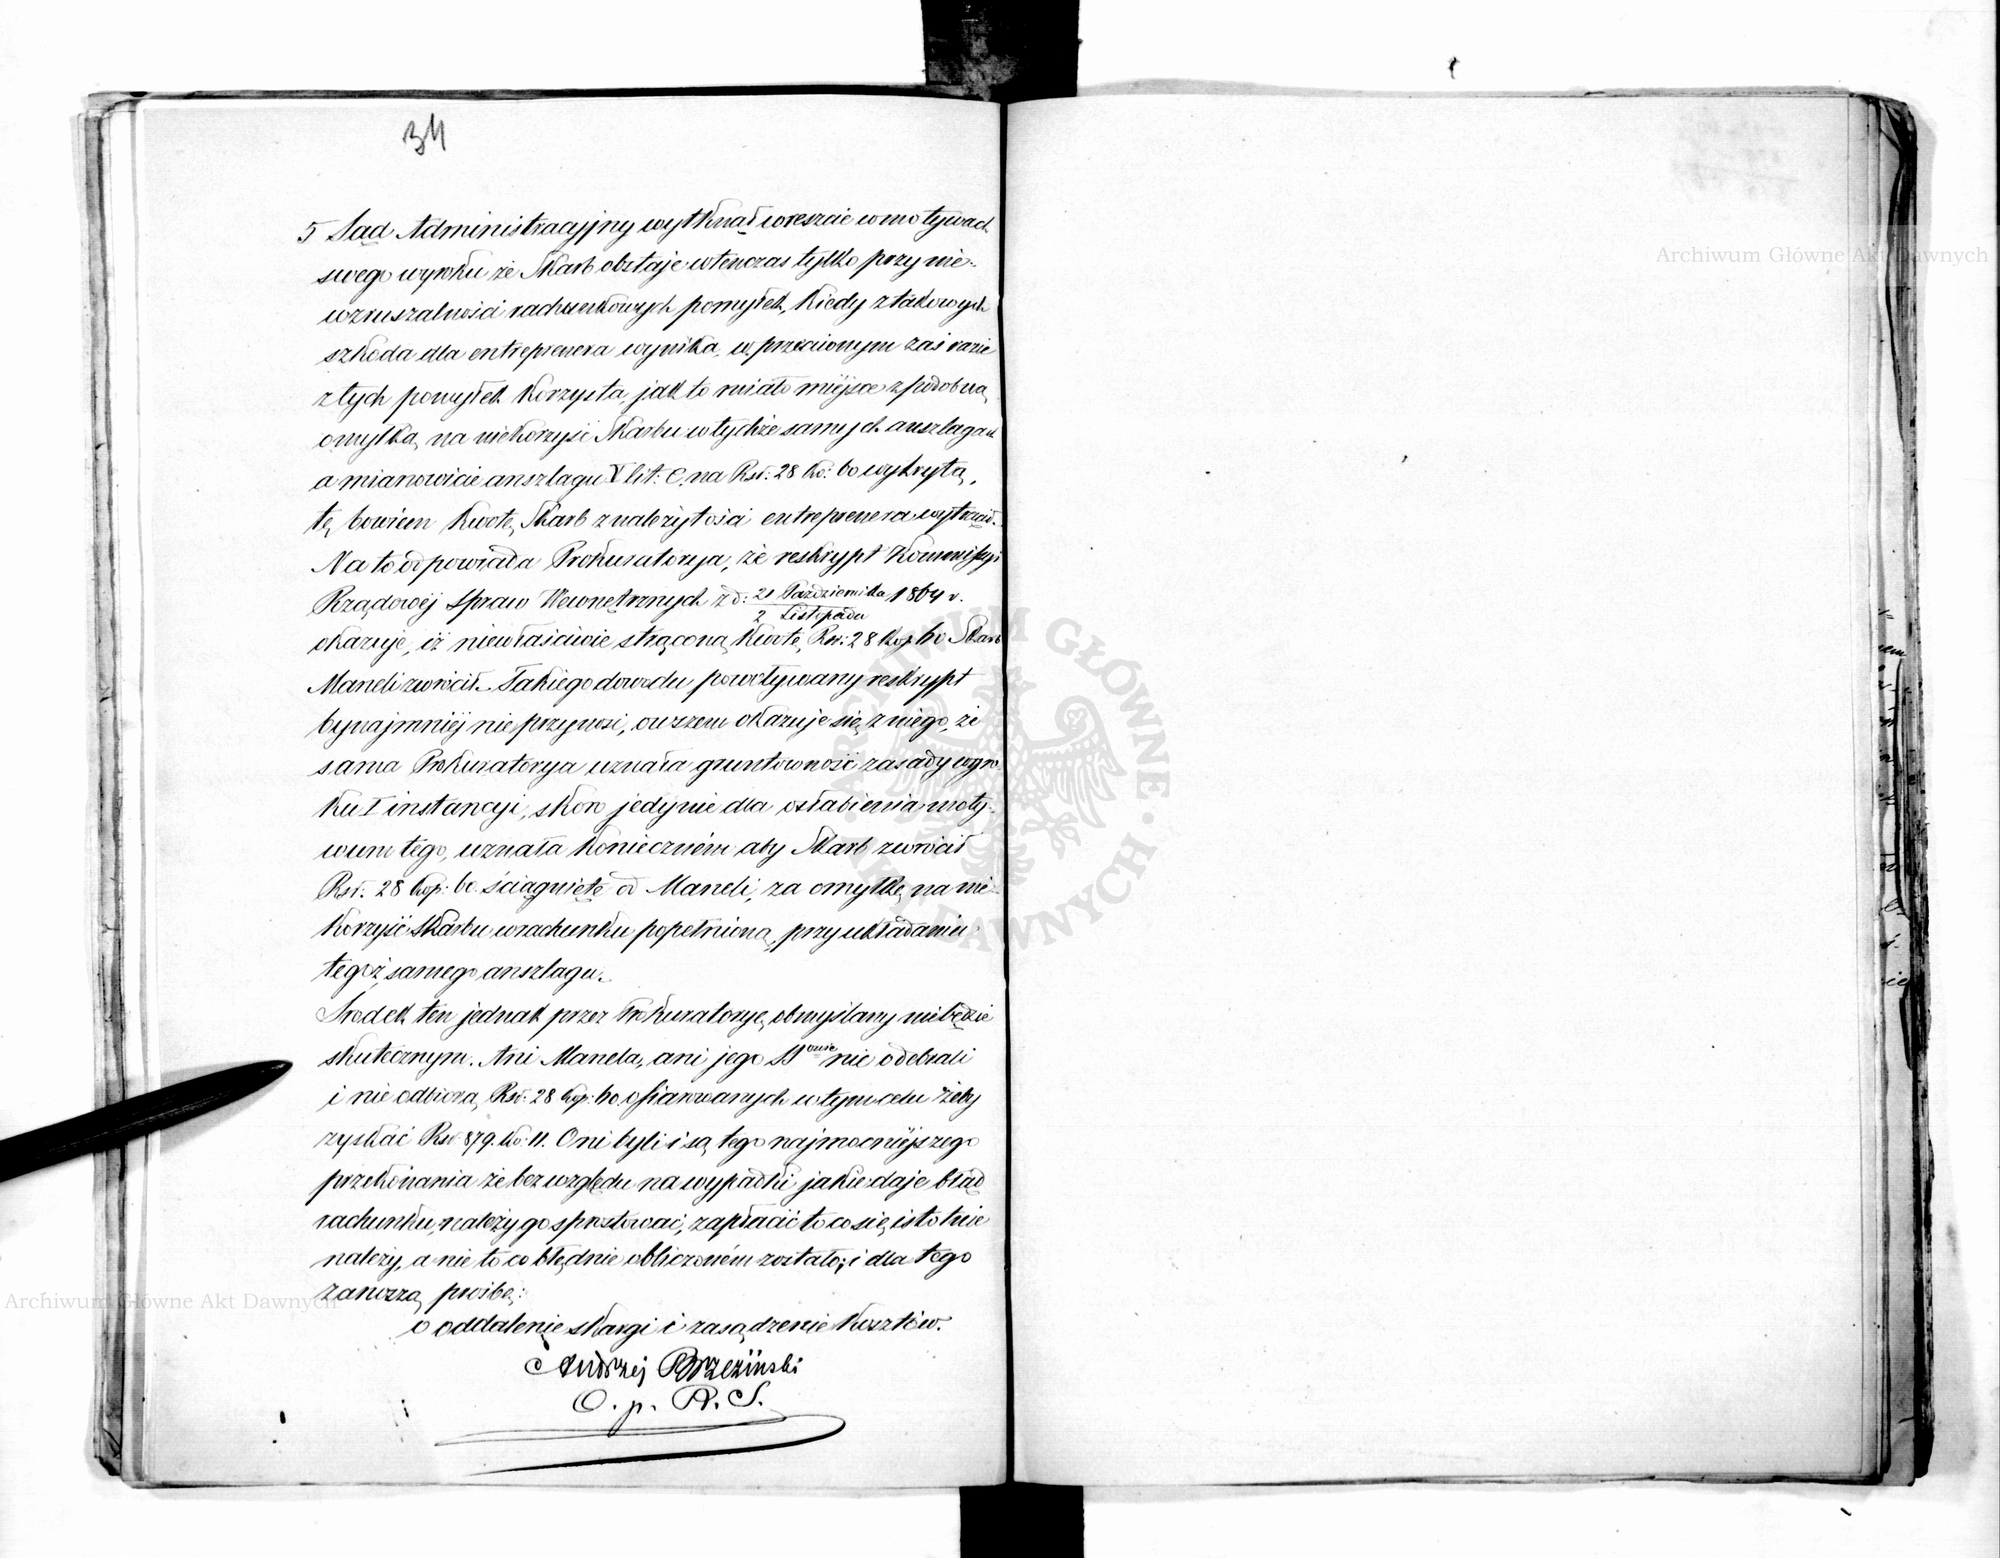 34
5 Sąd Administracyjny wytknął wreszcie w motywach
swego wyroku że Skarb obstaje wtenczas tylko przy nie-
wzruszalności rachunkowych pomyłek, kiedy z takowych
szkoda dla entreprenera wynika, w przeciwnym zaś razie
z tych pomyłek korzysta, jak to miało miejsce z podobną
omyłką na niekorzyść Skarbu w tychże samych anszlagach
a mianowicie anszlagu V lit: C. na Rsr: 28 ko: 60 wykrytą,
tę bowiem kwotę Skarb z należytości entreprenera wytrącił.
Na to odpowiada Prokuratorya, że reskrypt Kommissyi
Rządowéj Spraw Wewnętrznych z d: 21 Października / 2 Listopada 1864 r.
okazuje, iż niewłaściwie strąconą kwotę Rsr: 28 kop. 60 Skarb
Maneli zwrócił. Takiego dowodu powoływany reskrypt
bynajmniéj nie przynosi, owszem okazuje się z niego, że
sama Prokuratorya uznała gruntowność zasady wyro-
ku I instancyi, skoro jedynie dla osłabienia moty-
wum tego, uznała konieczném aby Skarb zwrócił
Rsr. 28 kop: 60 ściągnięte od Maneli, za omyłkę na nie-
korzyść Skarbu w rachunku popełnioną, przy układaniu
tegoż samego anszlagu.
Środek ten jednak przez Prokuratoryę obmyślany nie będzie
skutecznym. Ani Manela, ani jego SS<sup>owie</sup> nie odebrali
i nie odbiorą Rsr: 28 kop: 60 ofiarowanych w tym celu żeby
zyskać Rsr 879. ko: 11. Oni byli i są tego najmocniéjszego
przekonania że bez względu na wypadki jakie daje błąd
rachunku, należy go sprostować, zapłacić to co się istotnie
należy, a nie to co błędnie obliczoném zostało; i dla tego
zanoszą prośbę:
o oddalenie skargi i zasądzenie kosztów.
Andrzej Brzeziński
O. p. R. S.
Archiwum Główne Akt Dawnych
Archiwum Główne Akt Dawnych
ARCHIWUM GŁÓWNE AKT DAWNYCH